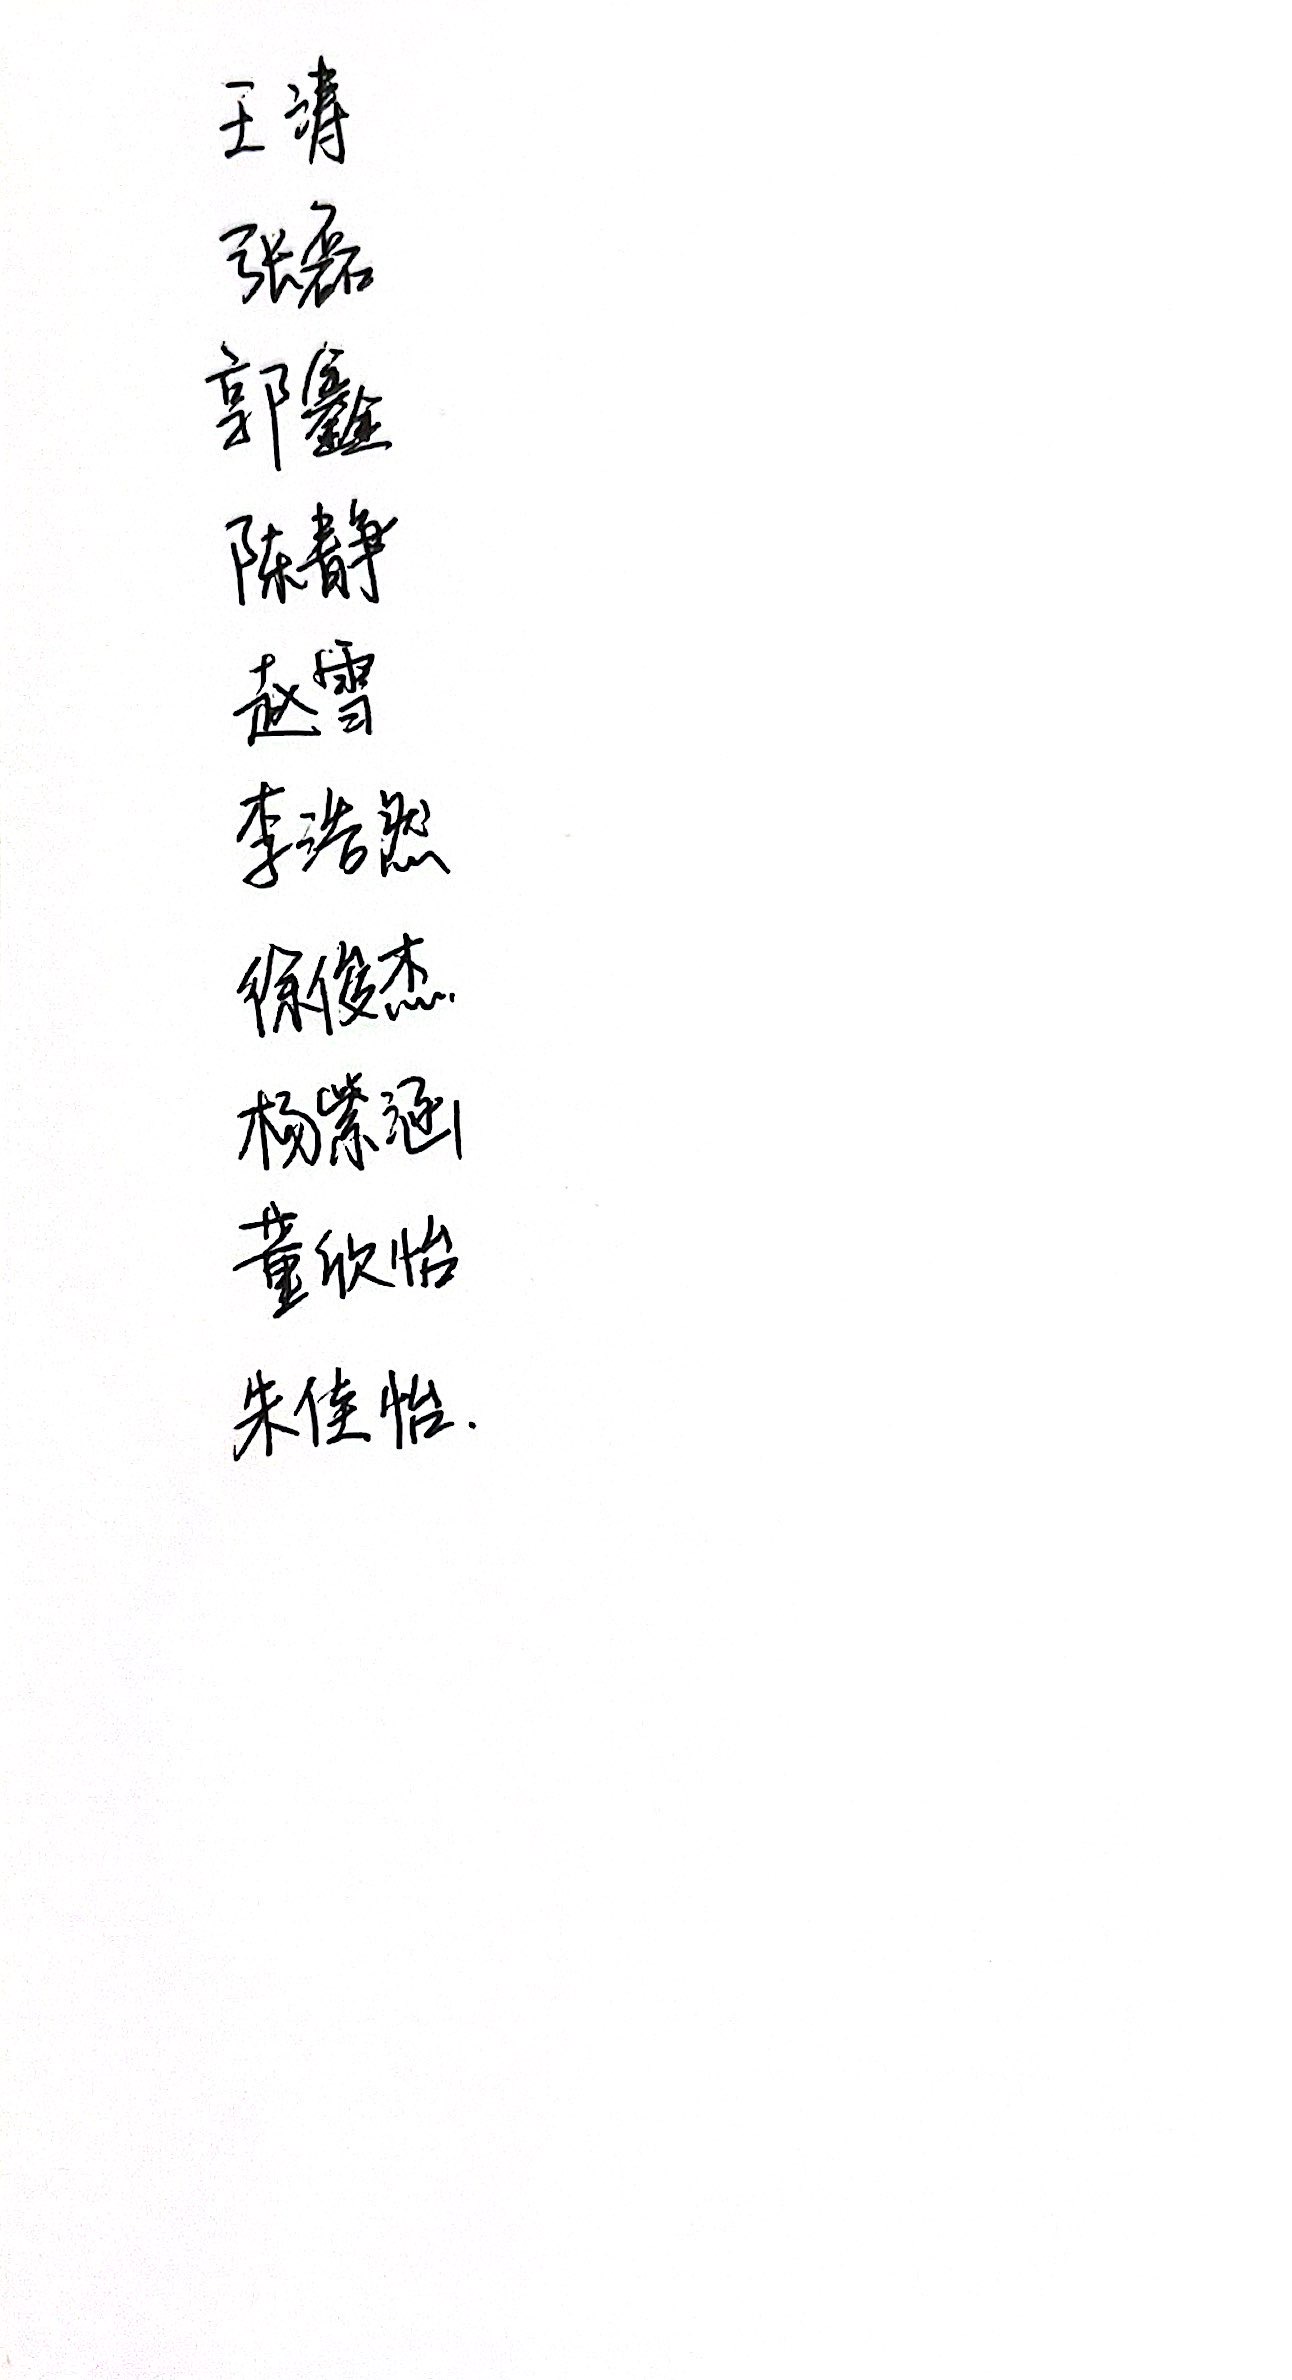 王涛
张磊
郭鑫
陈静
赵雪
李浩然
徐俊杰
杨紫涵
董欣怡
朱佳怡.